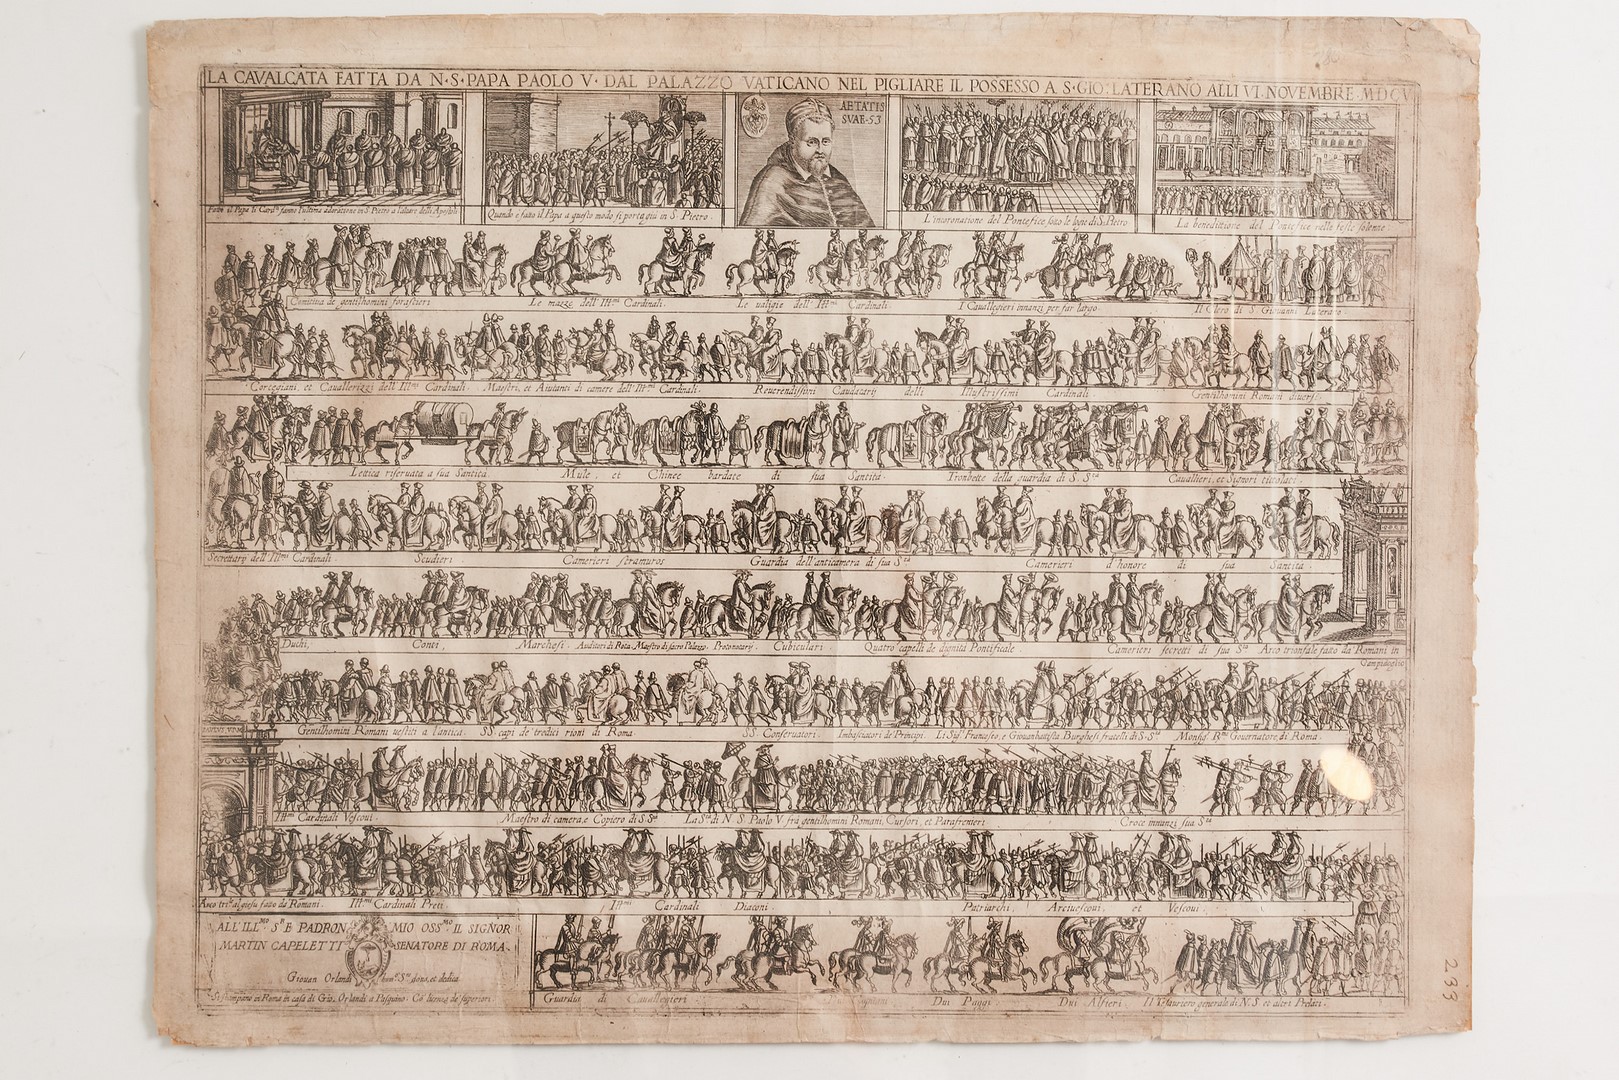 LA CAVALCATA FATTA DA N·S·PAPA PAOLO V· DAL PALAZZO VATICANO NEL PIGLIARE IL POSSESSO A S·GIO: LATERANO ALLI VI NOVEMBRE MDCV
AETATIS
SVAE·53
Fatto il Papa li Card.li fanno l'ultima adoratione in S. Pietro a l'altare delli Apostoli
Quando e fatto il Papa a questo modo si porta giu in S. Pietro.
L'incoronatione del Pontefice sotto le logie di S. Pietro
La benedittione del Pontefice nelle feste solenne
Comitiua de gentilhomini forastieri Le mazze dell' Ill.mi Cardinali. Le valigie dell' Ill.mi Cardinali I Cavalleggieri innanzi per far largo Il Clero di S. Giovanni Laterano
Cortegiani, et Cauallerizzi dell' Ill.mi Cardinali. Maestri, et Aiutanti di camere dell' Ill.mi Cardinali. Reuerendissimi Caudatarij delli Illustrissimi Cardinali. Gentilhomini Romani diuersi.
Lettica riseruata a sua Santità Mule, et Chinee bardate di sua Santità. Trombette della guardia di S. S.tà Cauallieri, et Signori titolati.
Secretarij dell' Ill.mi Cardinali Scudieri Camerieri stramuros Guardia dell'anticamera di sua S.tà Camerieri d'honore di sua Santità.
Duchi, Conti, Marchesi. Auditori di Rota. Maestro di sacro Palazzo. Protonotarij. Cubiculari. Quattro capelli de dignità Pontificale. Camerieri secretti di sua S.tà Arco trionfale fatto da Romani in
Campidoglio
Gentilhomini Romani uestiti a l'antica. SS. capi de' tredici rioni di Roma. SS. Conseruatori. Imbasciatori de' Principi. Li Sig.ri Francesco, e Giouanbattista Burghesi fratelli di S. S.tà Monsig. R.mo Gouernatore, di Roma.
Ill.mi Cardinali Vescoui. Maestro di camera, e Copiero di S. S.tà La S.tà di N. S. Paolo V. frà gentilhomini Romani, Cursori, et Parafrenieri Croce innanzi sua S.tà
Arco tri.le al giesu fatto da Romani. Ill.mi Cardinali Preti. Ill.mi Cardinali Diaconi. Patriarchi, Arciuescoui, et Vescoui.
ALL' ILL.MO S.R E PADRON MIO OSS.MO IL SIGNOR
MARTIN CAPELETTI SENATORE DI ROMA.
Giouan Orlandi dona, et dedica
Si stampano in Roma in casa di Gio. Orlandi a Pasquino. Cō licenza de superiori.
Guardia di Cauallegieri Dui Paggi. Dui Alfieri. Il Tesauriero generale di N. S. et altri Prelati.
233